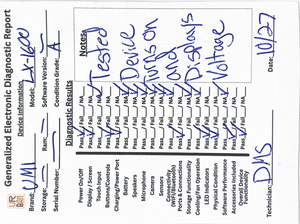 Generalized Electronic Diagnostic Report
Device Information
Brand: VMI Model: LX-1600
Storage: - Ram: - Software Version: -
Serial Number: - Condition Grade: A
Diagnostic Results
Power On/Off Pass Fail NA
Display / Screen Pass Fail NA
Touch Input Pass Fail NA
Buttons/Controls Pass Fail NA
Charging/Power Port Pass Fail NA
Battery Pass Fail NA
Speakers Pass Fail NA
Microphone Pass Fail NA
Camera Pass Fail NA
Sensors Pass Fail NA
Pass Fail NA
Ports & Connections Pass Fail NA
Storage Functionality Pass Fail NA
Cooling/Fan Operation Pass Fail NA
LED Indicators Pass Fail NA
Physical Condition Pass Fail NA
Software Performance Pass Fail NA
Accessories Included Pass Fail NA
Overall Device Functionality Pass Fail NA
Notes
Tested
Device
Turns on
and
Displays
Voltage
Technician: DMS Date: 10/27